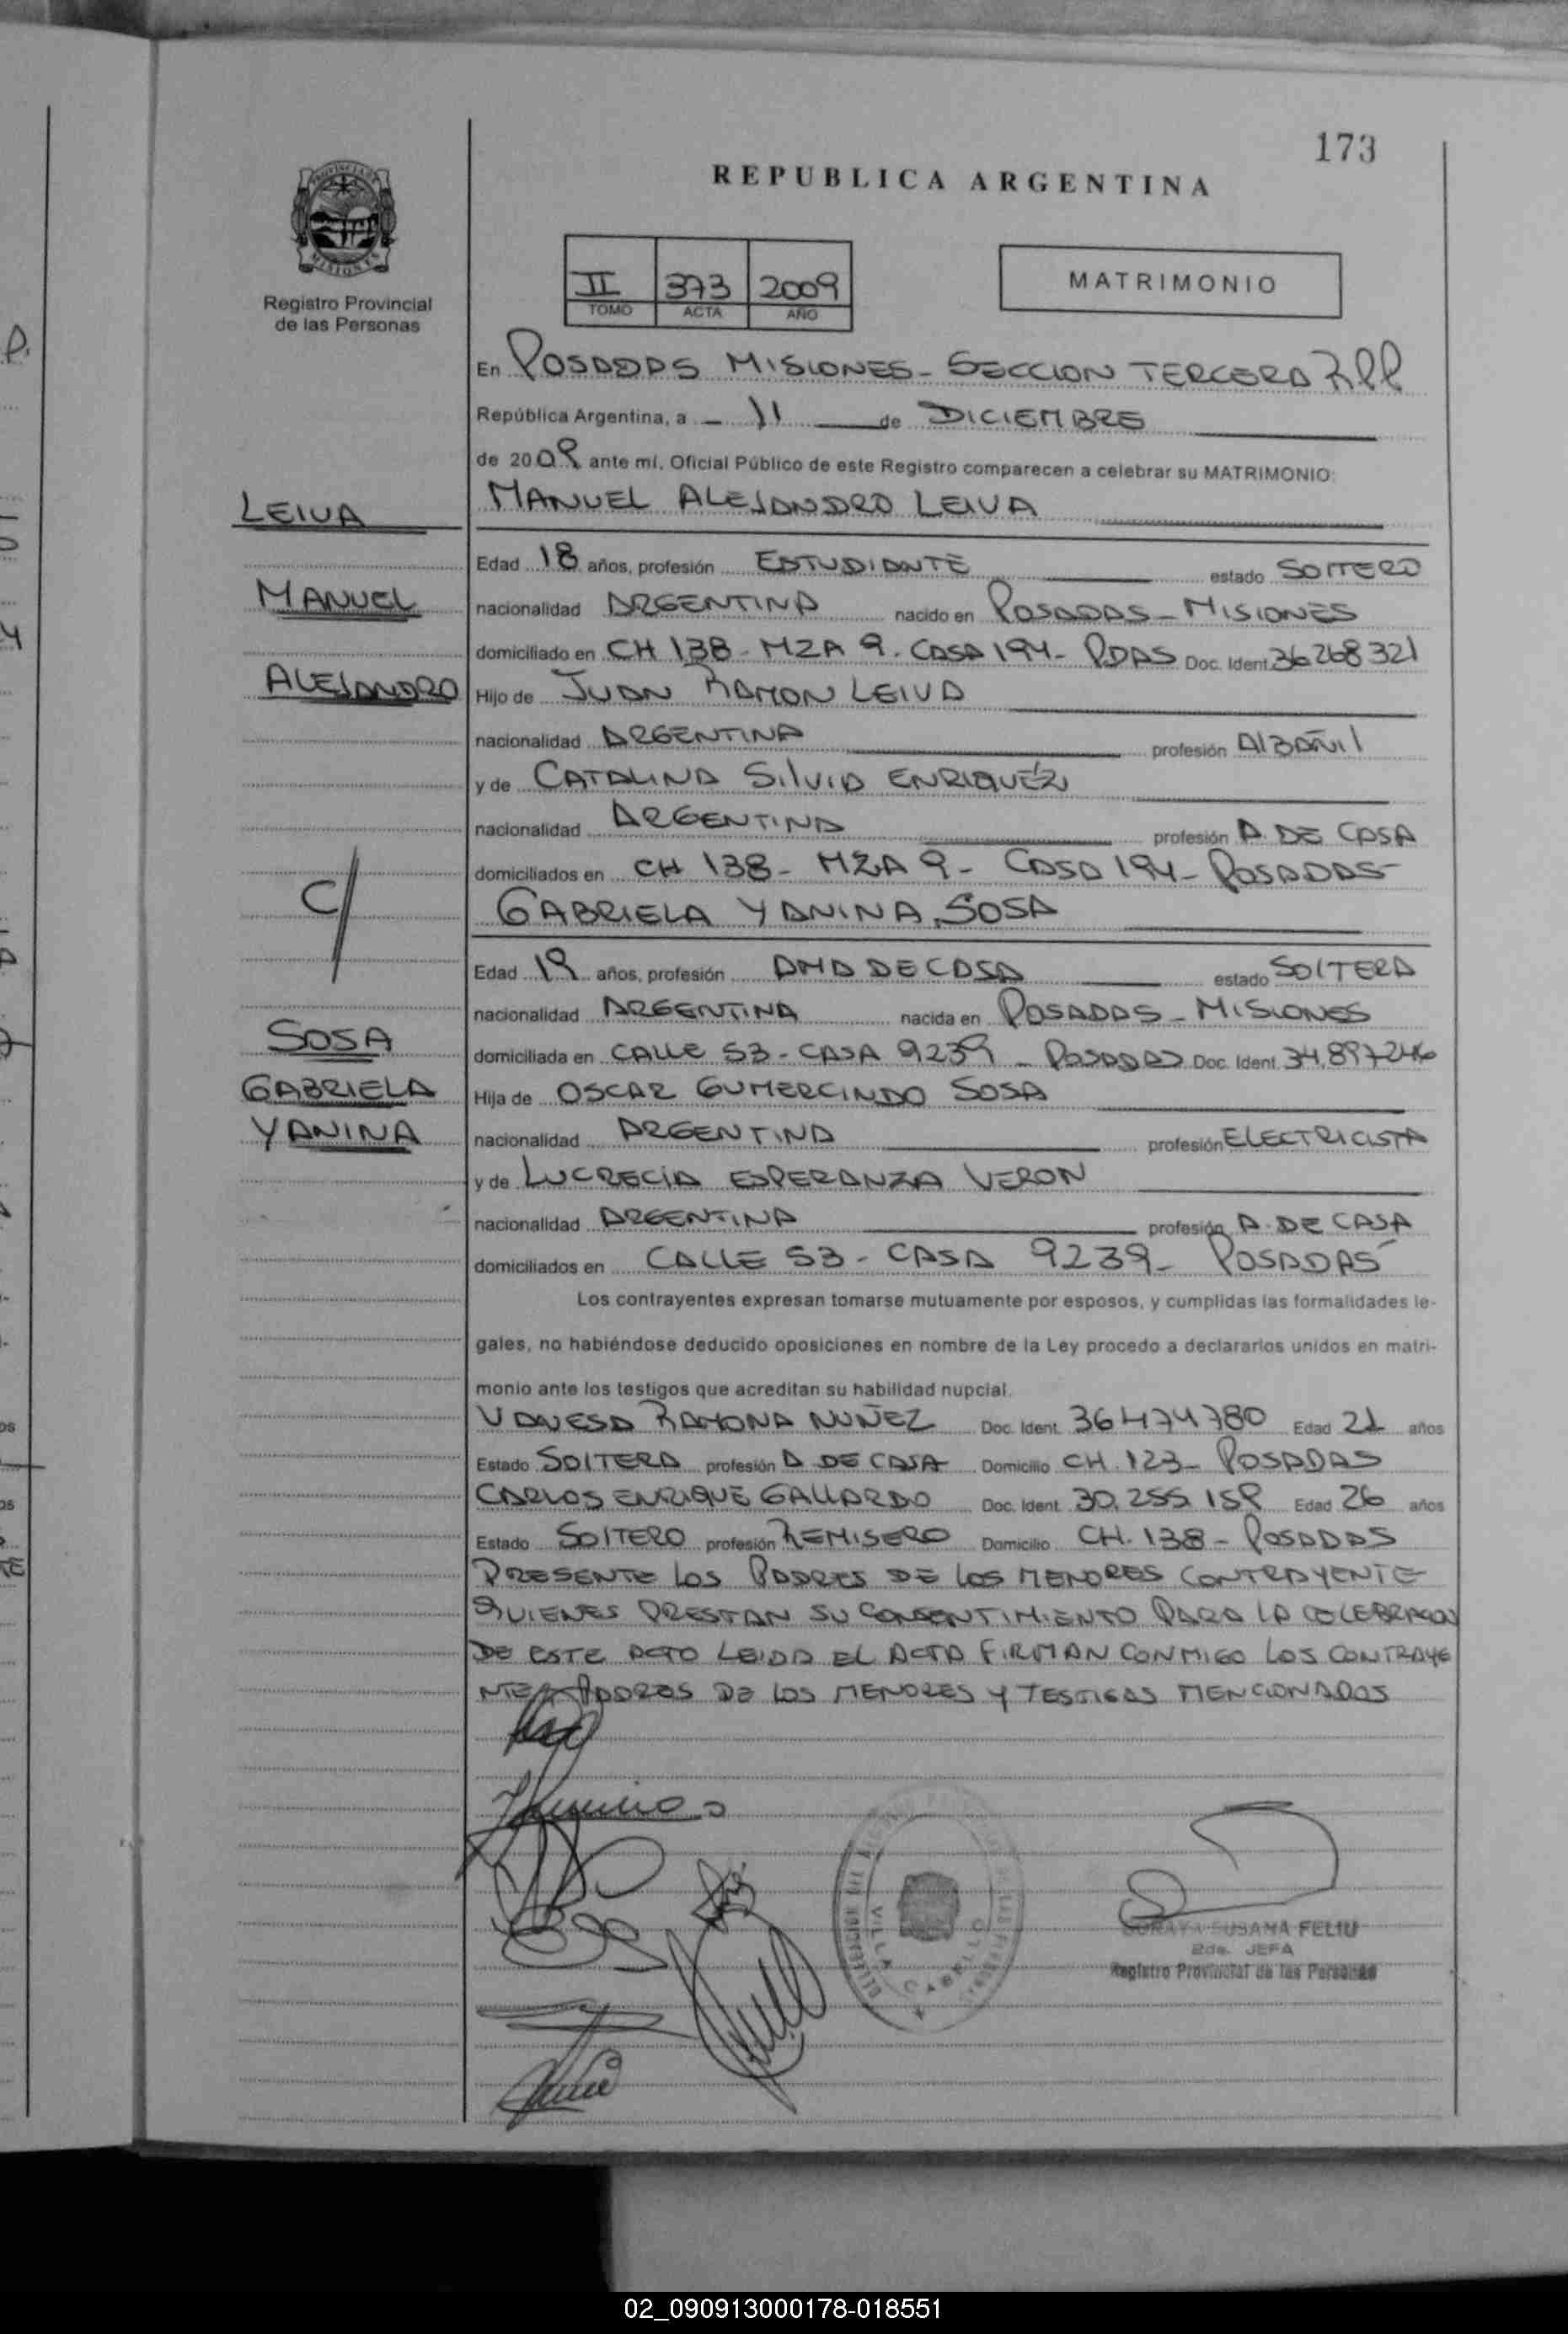 173
REPUBLICA ARGENTINA
PROVINCIA DE MISIONES
Registro Provincial
de las Personas
II 373 2009
TOMO ACTA AÑO
MATRIMONIO
En POSADAS MISIONES - SECCION TERCERA RPP
República Argentina, a - 11 de DICIEMBRE
de 2009 ante mí, Oficial Público de este Registro comparecen a celebrar su MATRIMONIO:
LEIVA
MANUEL ALEJANDRO LEIVA
Edad 18 años, profesión ESTUDIANTE estado SOLTERO
MANUEL
nacionalidad ARGENTINA nacido en POSADAS - MISIONES
domiciliado en CH 138 - MZA 9. CASA 194 - PDAS Doc. Ident. 36268321
ALEJANDRO
Hijo de JUAN RAMON LEIVA
nacionalidad ARGENTINA profesión ALBAÑIL
y de CATALINA SILVIA ENRIQUEZ
nacionalidad ARGENTINA profesión A. DE CASA
domiciliados en CH 138 - MZA 9 - CASA 194 - POSADAS
C/
GABRIELA YANINA SOSA
Edad 19 años, profesión AMA DE CASA estado SOLTERA
nacionalidad ARGENTINA nacida en POSADAS - MISIONES
SOSA
domiciliada en CALLE 53 - CASA 9239 - POSADAS Doc. Ident. 34.897246
GABRIELA
Hija de OSCAR GUMERCINDO SOSA
YANINA
nacionalidad ARGENTINA profesión ELECTRICISTA
y de LUCRECIA ESPERANZA VERON
nacionalidad ARGENTINA profesión A. DE CASA
domiciliados en CALLE 53 - CASA 9239 - POSADAS
Los contrayentes expresan tomarse mutuamente por esposos, y cumplidas las formalidades le-
gales, no habiéndose deducido oposiciones en nombre de la Ley procedo a declararlos unidos en matri-
monio ante los testigos que acreditan su habilidad nupcial.
VANESA RAMONA NUÑEZ Doc. Ident. 36474780 Edad 21 años
Estado SOLTERA profesión A DE CASA Domicilio CH. 123 - POSADAS
CARLOS ENRIQUE GALLARDO Doc. Ident. 30.255.159 Edad 26 años
Estado SOLTERO profesión REMISERO Domicilio CH. 138 - POSADAS
PRESENTE LOS PADRES DE LOS MENORES CONTRAYENTE
QUIENES PRESTAN SU CONSENTIMIENTO PARA LA CELEBRACION
DE ESTE ACTO LEIDA EL ACTA FIRMAN CONMIGO LOS CONTRAYE
NTES PADRES DE LOS MENORES Y TESTIGOS MENCIONADOS
VILLA CABELLO
SORAYA SUSANA FELIU
2da. JEFA
Registro Provincial de las Personas
02_090913000178-018551